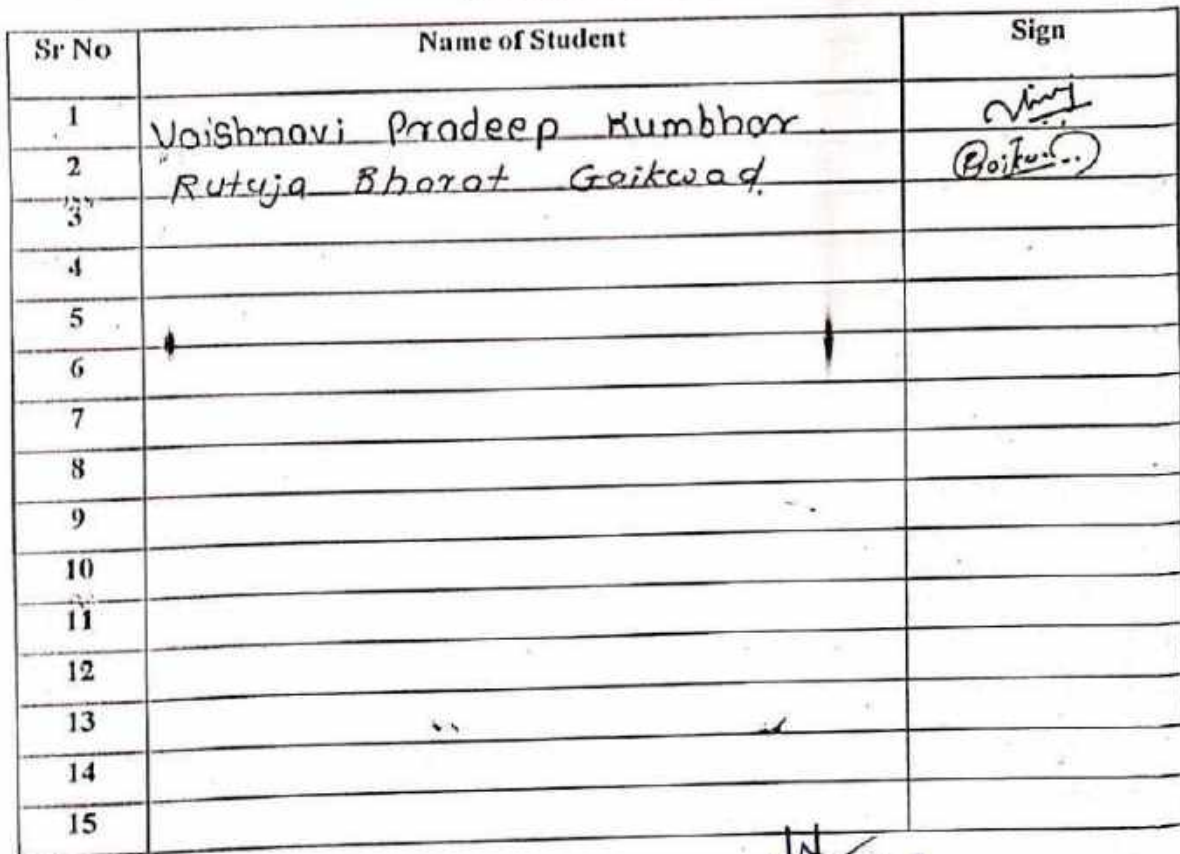 Sr No Name of Student Sign
1 Vaishnavi Pradeep Kumbhar
2 Rutuja Bharat Gaikwad
3
4
5
6
7
8
9
10
11
12
13
14
15